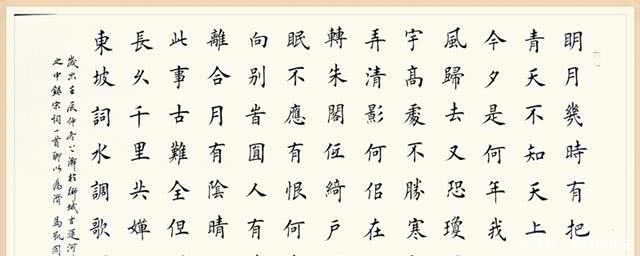 明月幾時有把
青天不知天上
今夕是何年我
風歸去又恐瓊
宇高處不勝寒
弄清影何佀在
轉朱閣低綺戶
眠不應有恨何
向别旹圓人有
離合月有陰晴
此事古難全但
長久千里共嬋
東坡詞水調歌
歲次壬辰仲冬於城古運河
之中錄宋詞一首聊以為